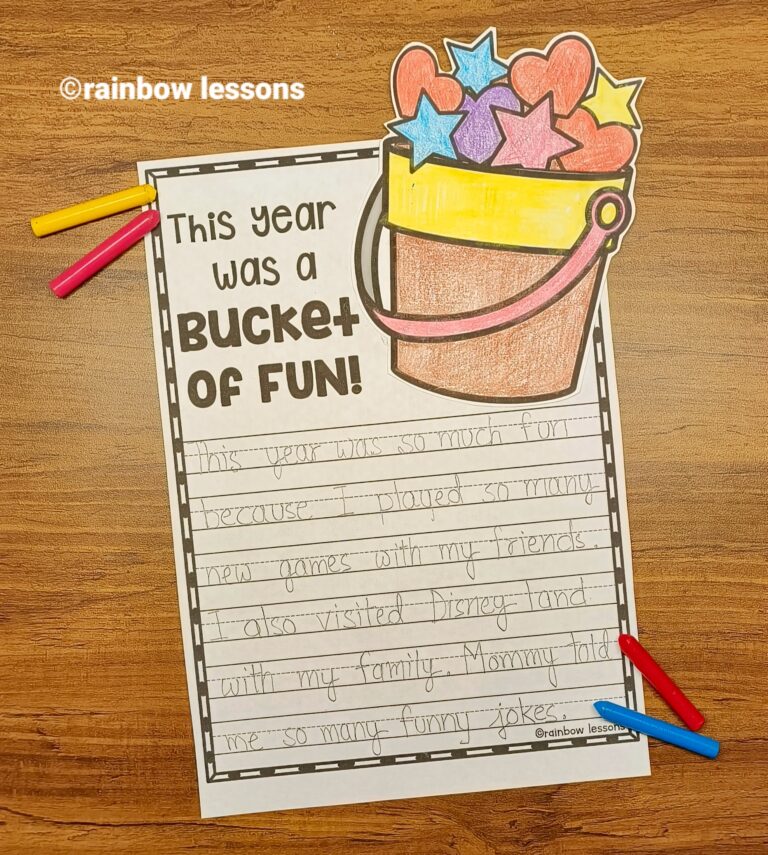 ©rainbow lessons
This year
was a
Bucket
of FUN!
This year was so much fun
because I played so many
new games with my friends.
I also visited Disney land
with my family. Mommy told
me so many funny jokes.
©rainbow lessons